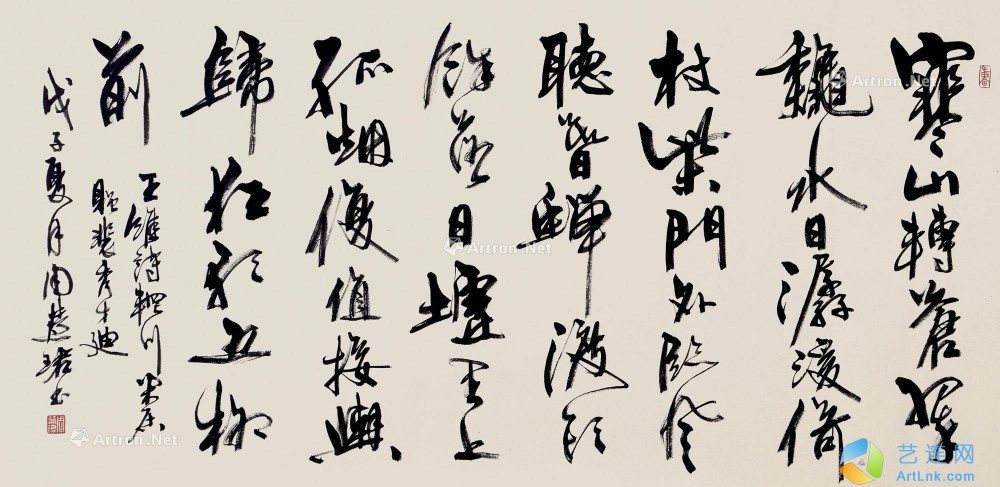 寒山轉蒼翠
龝水日潺湲倚
杖柴門外臨風
聽暮蟬渡頭
餘落日墟里上
孤烟復值接輿
歸狂歌五柳
前
王維詩輞川閑居
贈裴秀才迪
戊子夏月周慧珺書
Artron.Net
Artron.Net
Artron.Net
Artron.Net
Artron.Net
艺连网
ArtLnk.com